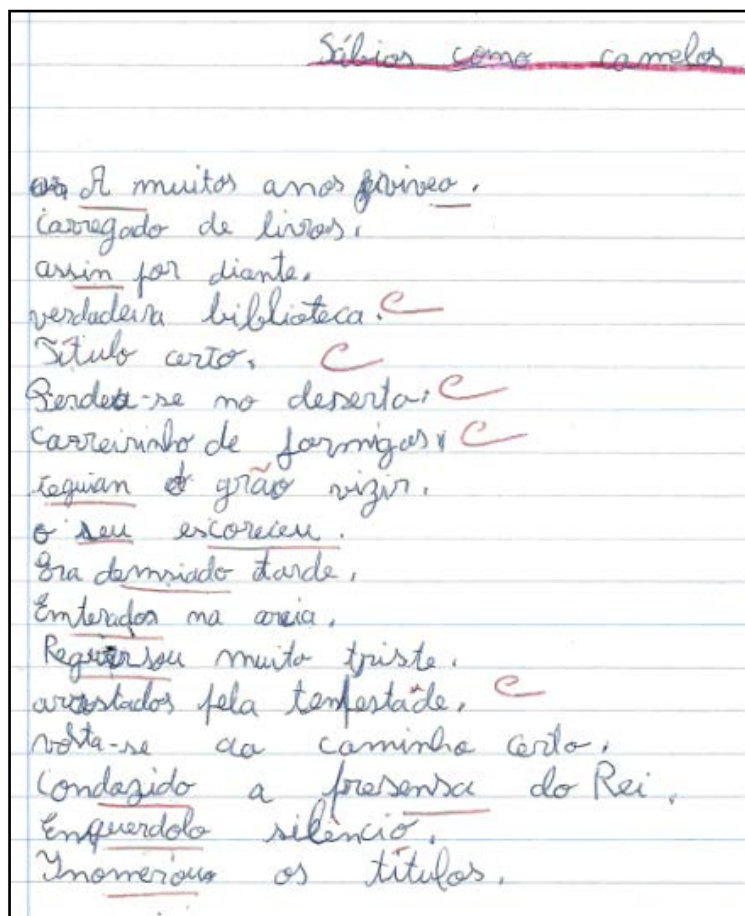 Sábios como camelos
A muitos anos viveo.
Carregado de livros.
assin por diante.
verdadeira biblioteca. C
Título certo. C
Perdeu-se no deserto. C
Carreirinho de formigas. C
seguian o grão vizir.
o seu escoreceu.
Era demsiado tarde.
Enterados na areia.
muito triste.
arrostados pela tempestade. C
volta-se ao caminho certo.
Condazido a presensa do Rei.
Enquerdolo silêncio.
Inomeriou os títulos.